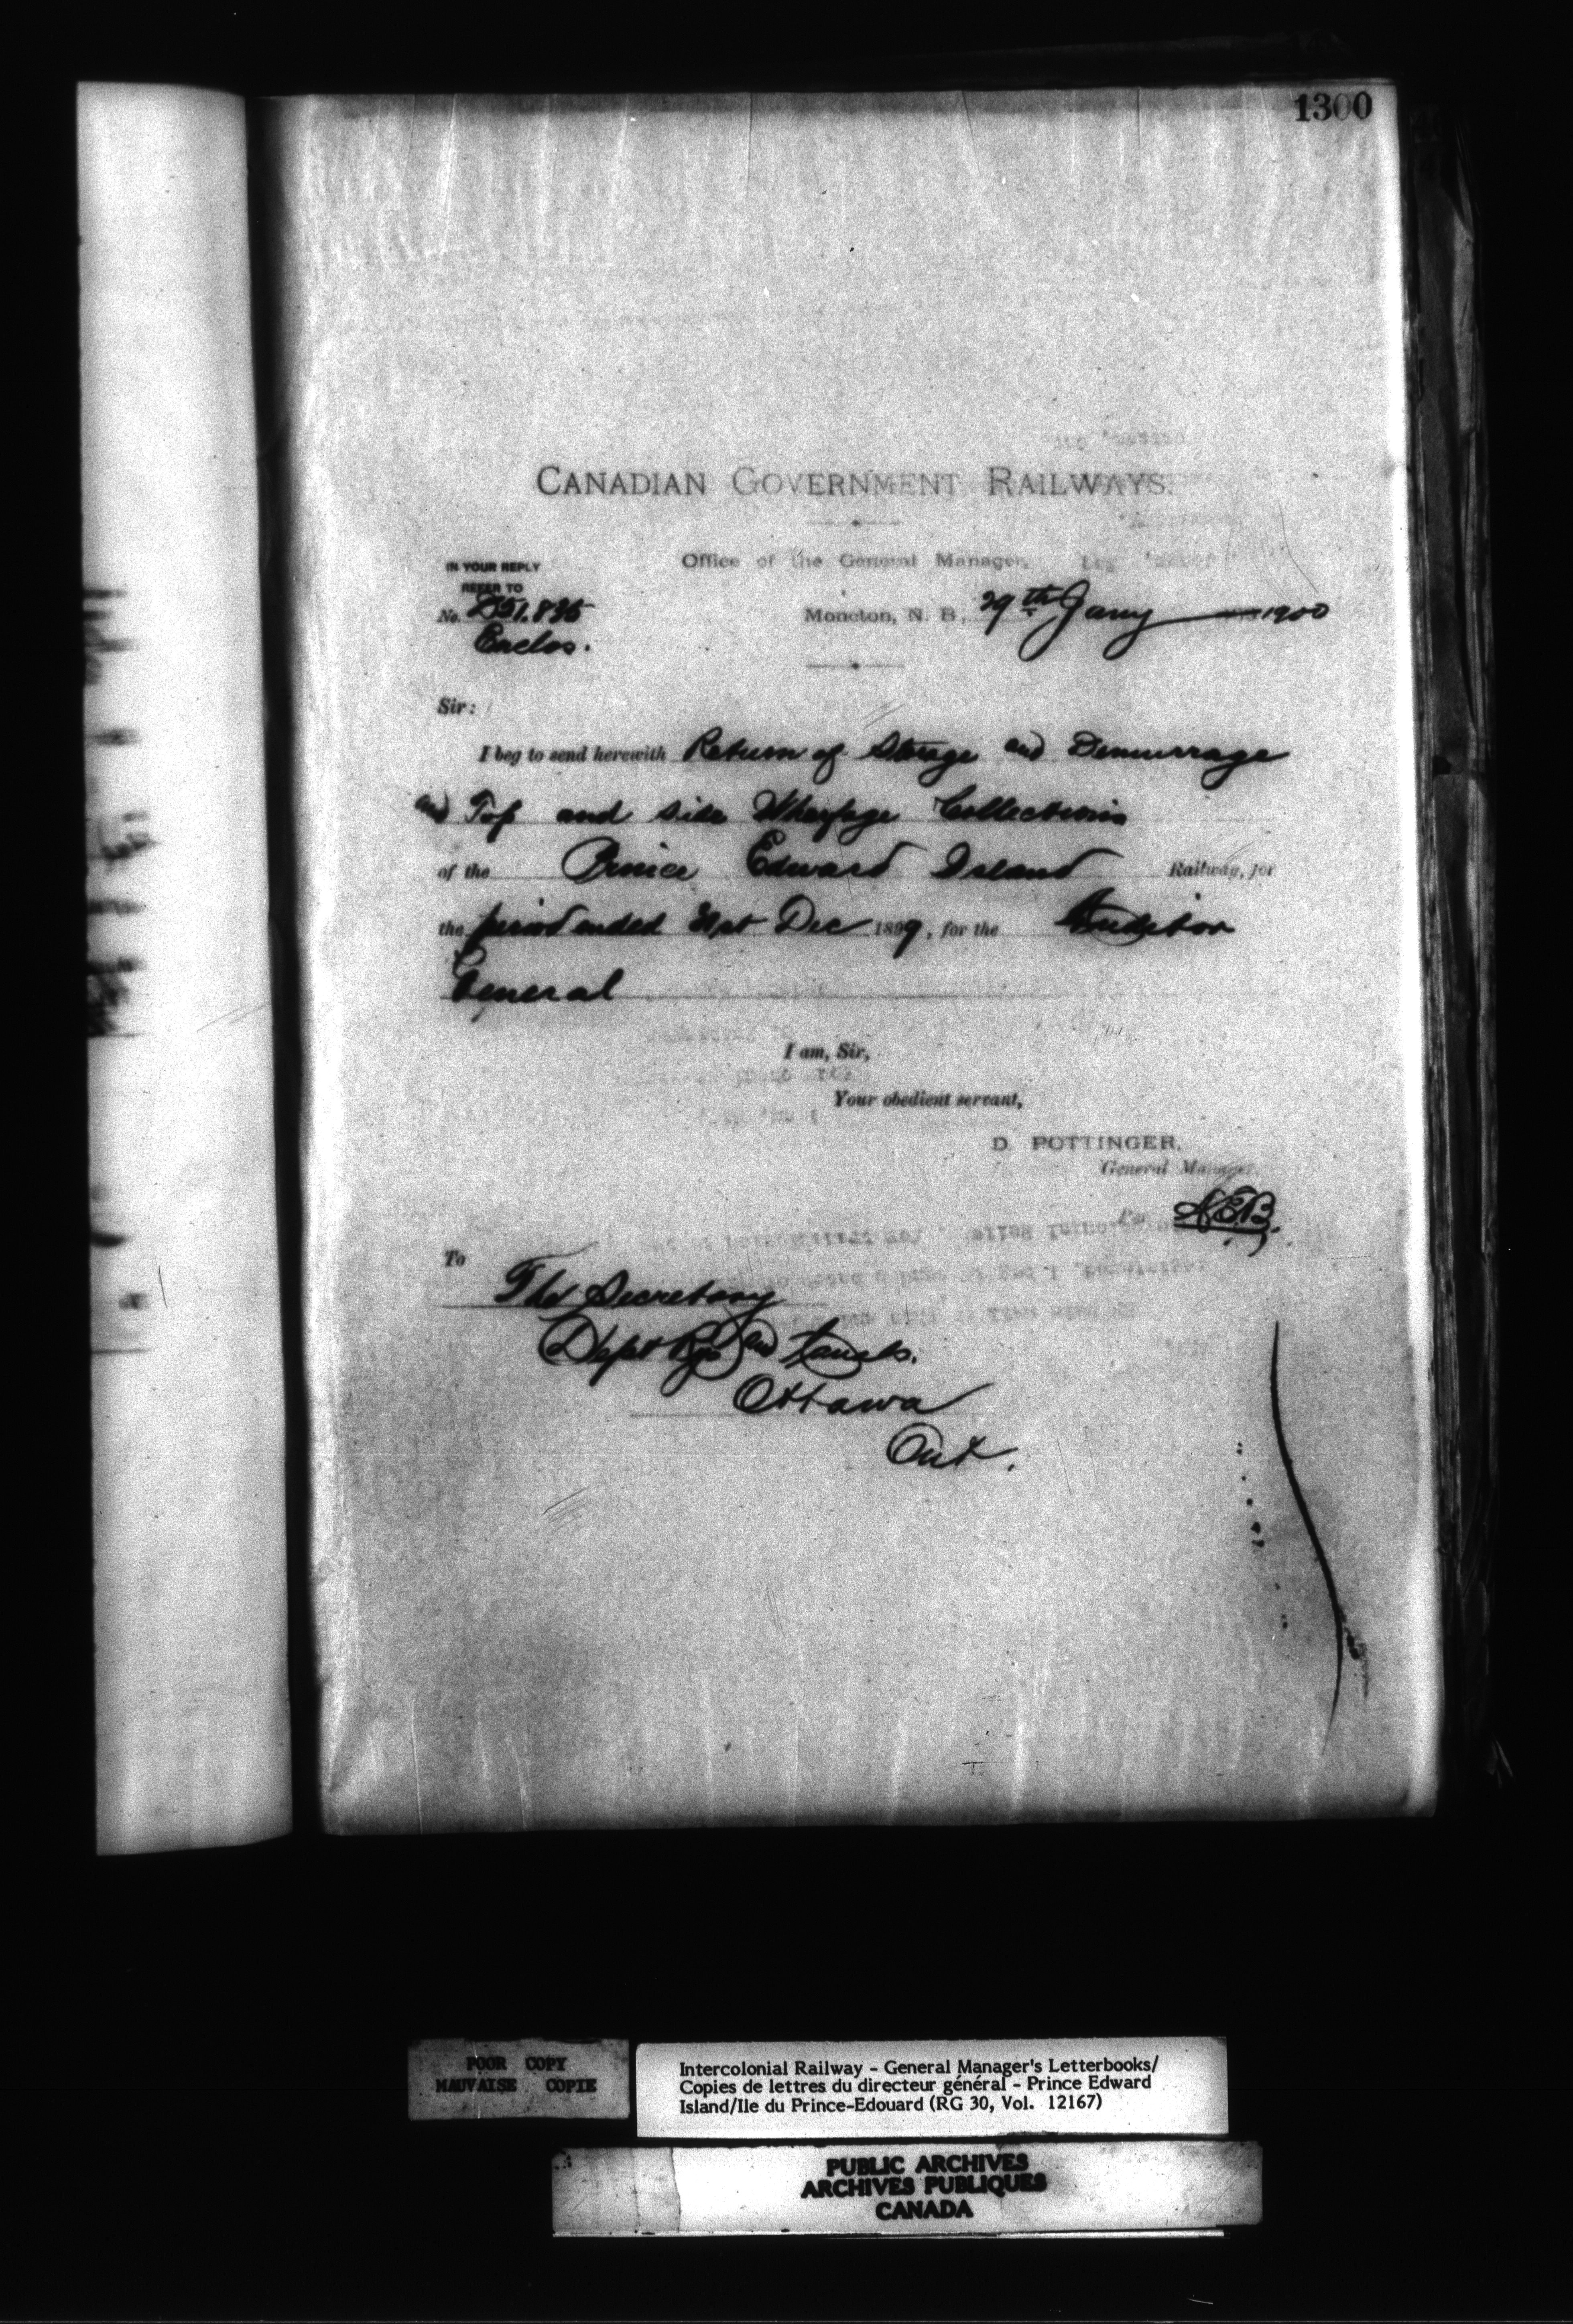 1300
CANADIAN GOVERNMENT RAILWAYS.
Office of the General Manager,
IN YOUR REPLY
REFER TO
No. D51.835
Enclos.
Moncton, N. B., 29th Jany 1900
Sir:
I beg to send herewith Return of Storage and Demurrage
and Top and side Wharfage Collections
of the Prince Edward Island Railway, for
the period ended 31st Dec 1899, for the Auditor
General
I am, Sir,
Your obedient servant,
D. POTTINGER,
General Manager.
Per
To
The Secretary
Dept Rys and Canals.
Ottawa
Ont.
POOR COPY
MAUVAISE COPIE
Intercolonial Railway - General Manager's Letterbooks/
Copies de lettres du directeur général - Prince Edward
Island/Ile du Prince-Edouard (RG 30, Vol. 12167)
PUBLIC ARCHIVES
ARCHIVES PUBLIQUES
CANADA